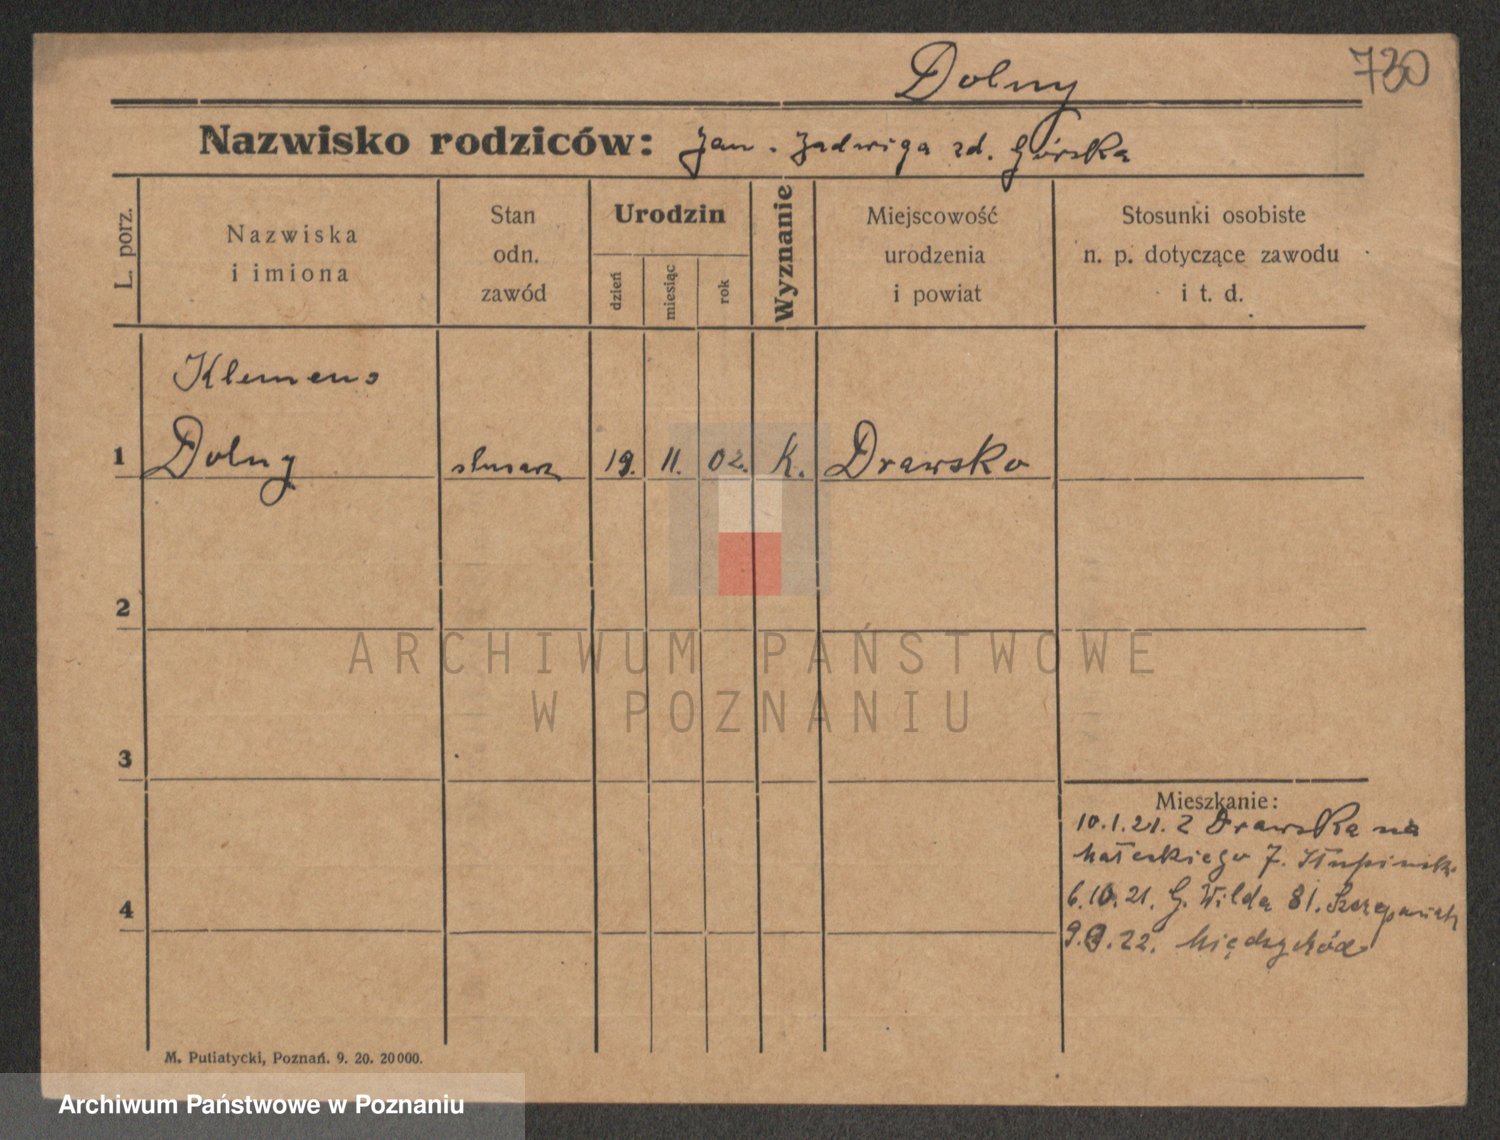 Dolny
730
Nazwisko rodziców: Jan. Jadwiga zd. Górska
L. porz.
Nazwiska
i imiona
Stan
odn.
zawód
Urodzin
dzień
miesiąc
rok
Wyznanie
Miejscowość
urodzenia
i powiat
Stosunki osobiste
n. p. dotyczące zawodu
i t. d.
Klemens
1 Dolny ślusarz 19. 11. 02. K. Drawsko
2
ARCHIWUM PAŃSTWOWE
W POZNANIU
3
Mieszkanie:
10.1.21. z Drawska na
Małeckiego 7.
4
6.10.21. G. Wilda 81. Szczepaniak
22. Międzychód
M. Putiatycki, Poznań. 9. 20. 20000.
Archiwum Państwowe w Poznaniu